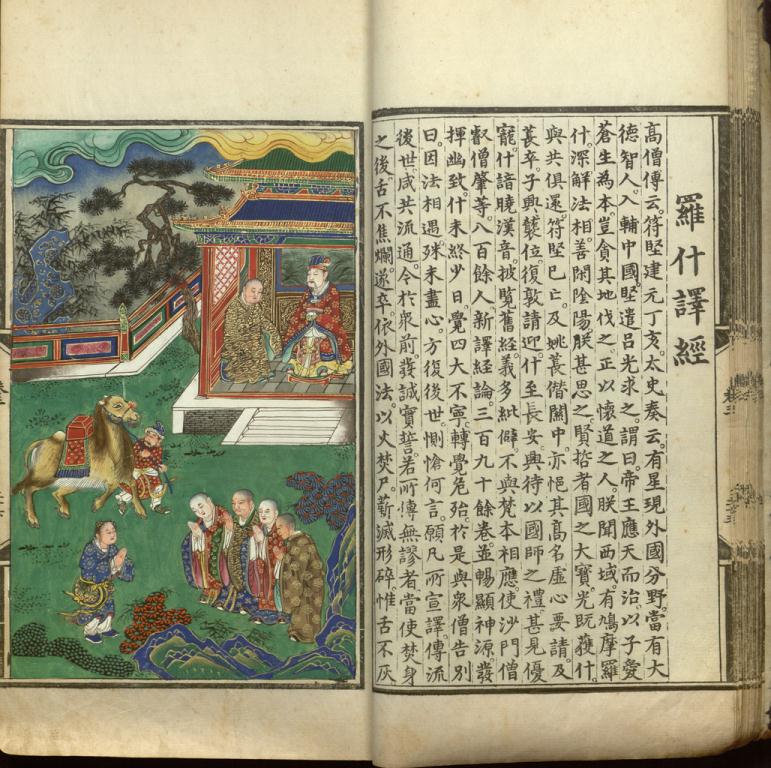 羅什譯經
高僧傳云。符堅建元丁亥。太史奏云。有星現外國分野。當有大
德智人。入輔中國。堅遣呂光求之。謂曰。帝王應天而治。以子愛
蒼生為本。豈貪其地伐之。正以懷道之人。朕聞西域有鳩摩羅
什。深解法相。善閑陰陽。朕甚思之。賢哲者國之大寶。光既獲什。
與共俱還。符堅已亡。及姚萇僭關中。亦悒其高名虛心要請。及
萇卒。子興襲位。復敦請迎什至長安。興待以國師之禮。甚見優
寵。什諳曉漢音。披覽舊經。義多紕僻。不與梵本相應。使沙門僧
叡僧肇等。八百餘人。新譯經論。三百九十餘卷。並暢顯神源。發
揮幽致。什未終少日。覺四大不寧。轉覺危殆。於是與眾僧告別
曰。因法相遇。殊未盡心。方復後世。惻愴何言。願凡所宣譯。傳流
後世。咸共流通。今於眾前。發誠實誓。若所傳無謬者。當使焚身
之後。舌不焦爛。遂卒。依外國法。以火焚尸。薪滅形碎。惟舌不灰